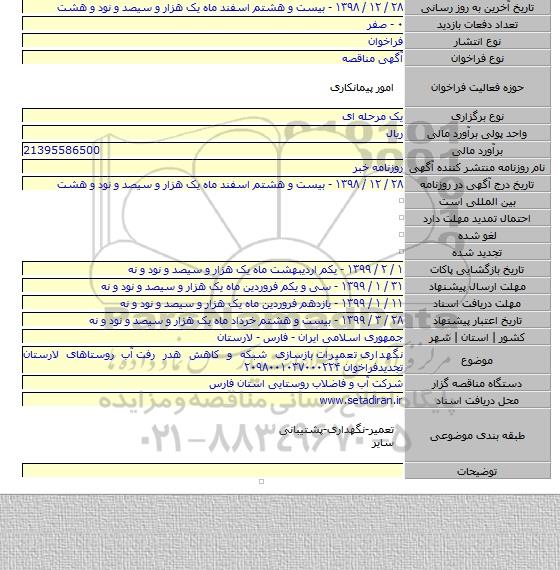 تاریخ آخرین به روز رسانی ۲۸ / ۱۲ / ۱۳۹۸ - بیست و هشتم اسفند ماه یک هزار و سیصد و نود و هشت
تعداد دفعات بازدید ۰ - صفر
نوع انتشار فراخوان
نوع فراخوان آگهی مناقصه
حوزه فعالیت فراخوان امور پیمانکاری
نوع برگزاری یک مرحله ای
واحد پولی برآورد مالی ریال
برآورد مالی 21395586500
نام روزنامه منتشر کننده آگهی روزنامه خبر
تاریخ درج آگهی در روزنامه ۲۸ / ۱۲ / ۱۳۹۸ - بیست و هشتم اسفند ماه یک هزار و سیصد و نود و هشت
بین المللی است
احتمال تمدید مهلت دارد
لغو شده
تجدید شده
تاریخ بازگشایی پاکات ۱ / ۲ / ۱۳۹۹ - یکم اردیبهشت ماه یک هزار و سیصد و نود و نه
مهلت ارسال پیشنهاد ۳۱ / ۱ / ۱۳۹۹ - سی و یکم فروردین ماه یک هزار و سیصد و نود و نه
مهلت دریافت اسناد ۱۱ / ۱ / ۱۳۹۹ - یازدهم فروردین ماه یک هزار و سیصد و نود و نه
تاریخ اعتبار پیشنهاد ۲۸ / ۳ / ۱۳۹۹ - بیست و هشتم خرداد ماه یک هزار و سیصد و نود و نه
کشور | استان | شهر جمهوری اسلامی ایران - فارس - لارستان
موضوع نگهداری تعمیرات بازسازی شبکه و کاهش هدر رفت آب روستاهای لارستان
تجدیدفراخوان ۲۰۹۸۰۰۱۰۳۷۰۰۰۲۲۴
دستگاه مناقصه گزار شرکت آب و فاضلاب روستایی استان فارس
محل دریافت اسناد www.setadiran.ir
طبقه بندی موضوعی تعمیر-نگهداری-پشتیبانی
سایر
توضیحات
پایگاه اطلاع رسانی مناقصه و مزایده
۰۲۱-۸۸۳۴۹۶۷۰-۵